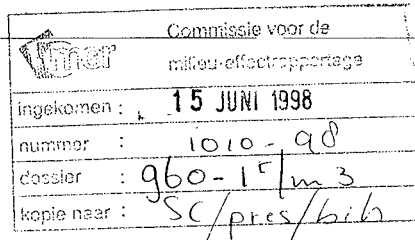 mer
Commissie voor de
milieu-effectrapportage
ingekomen : 15 JUNI 1998
nummer : 1010-98
dossier : 960-15/m3
kopie naar : SC/pres/bib